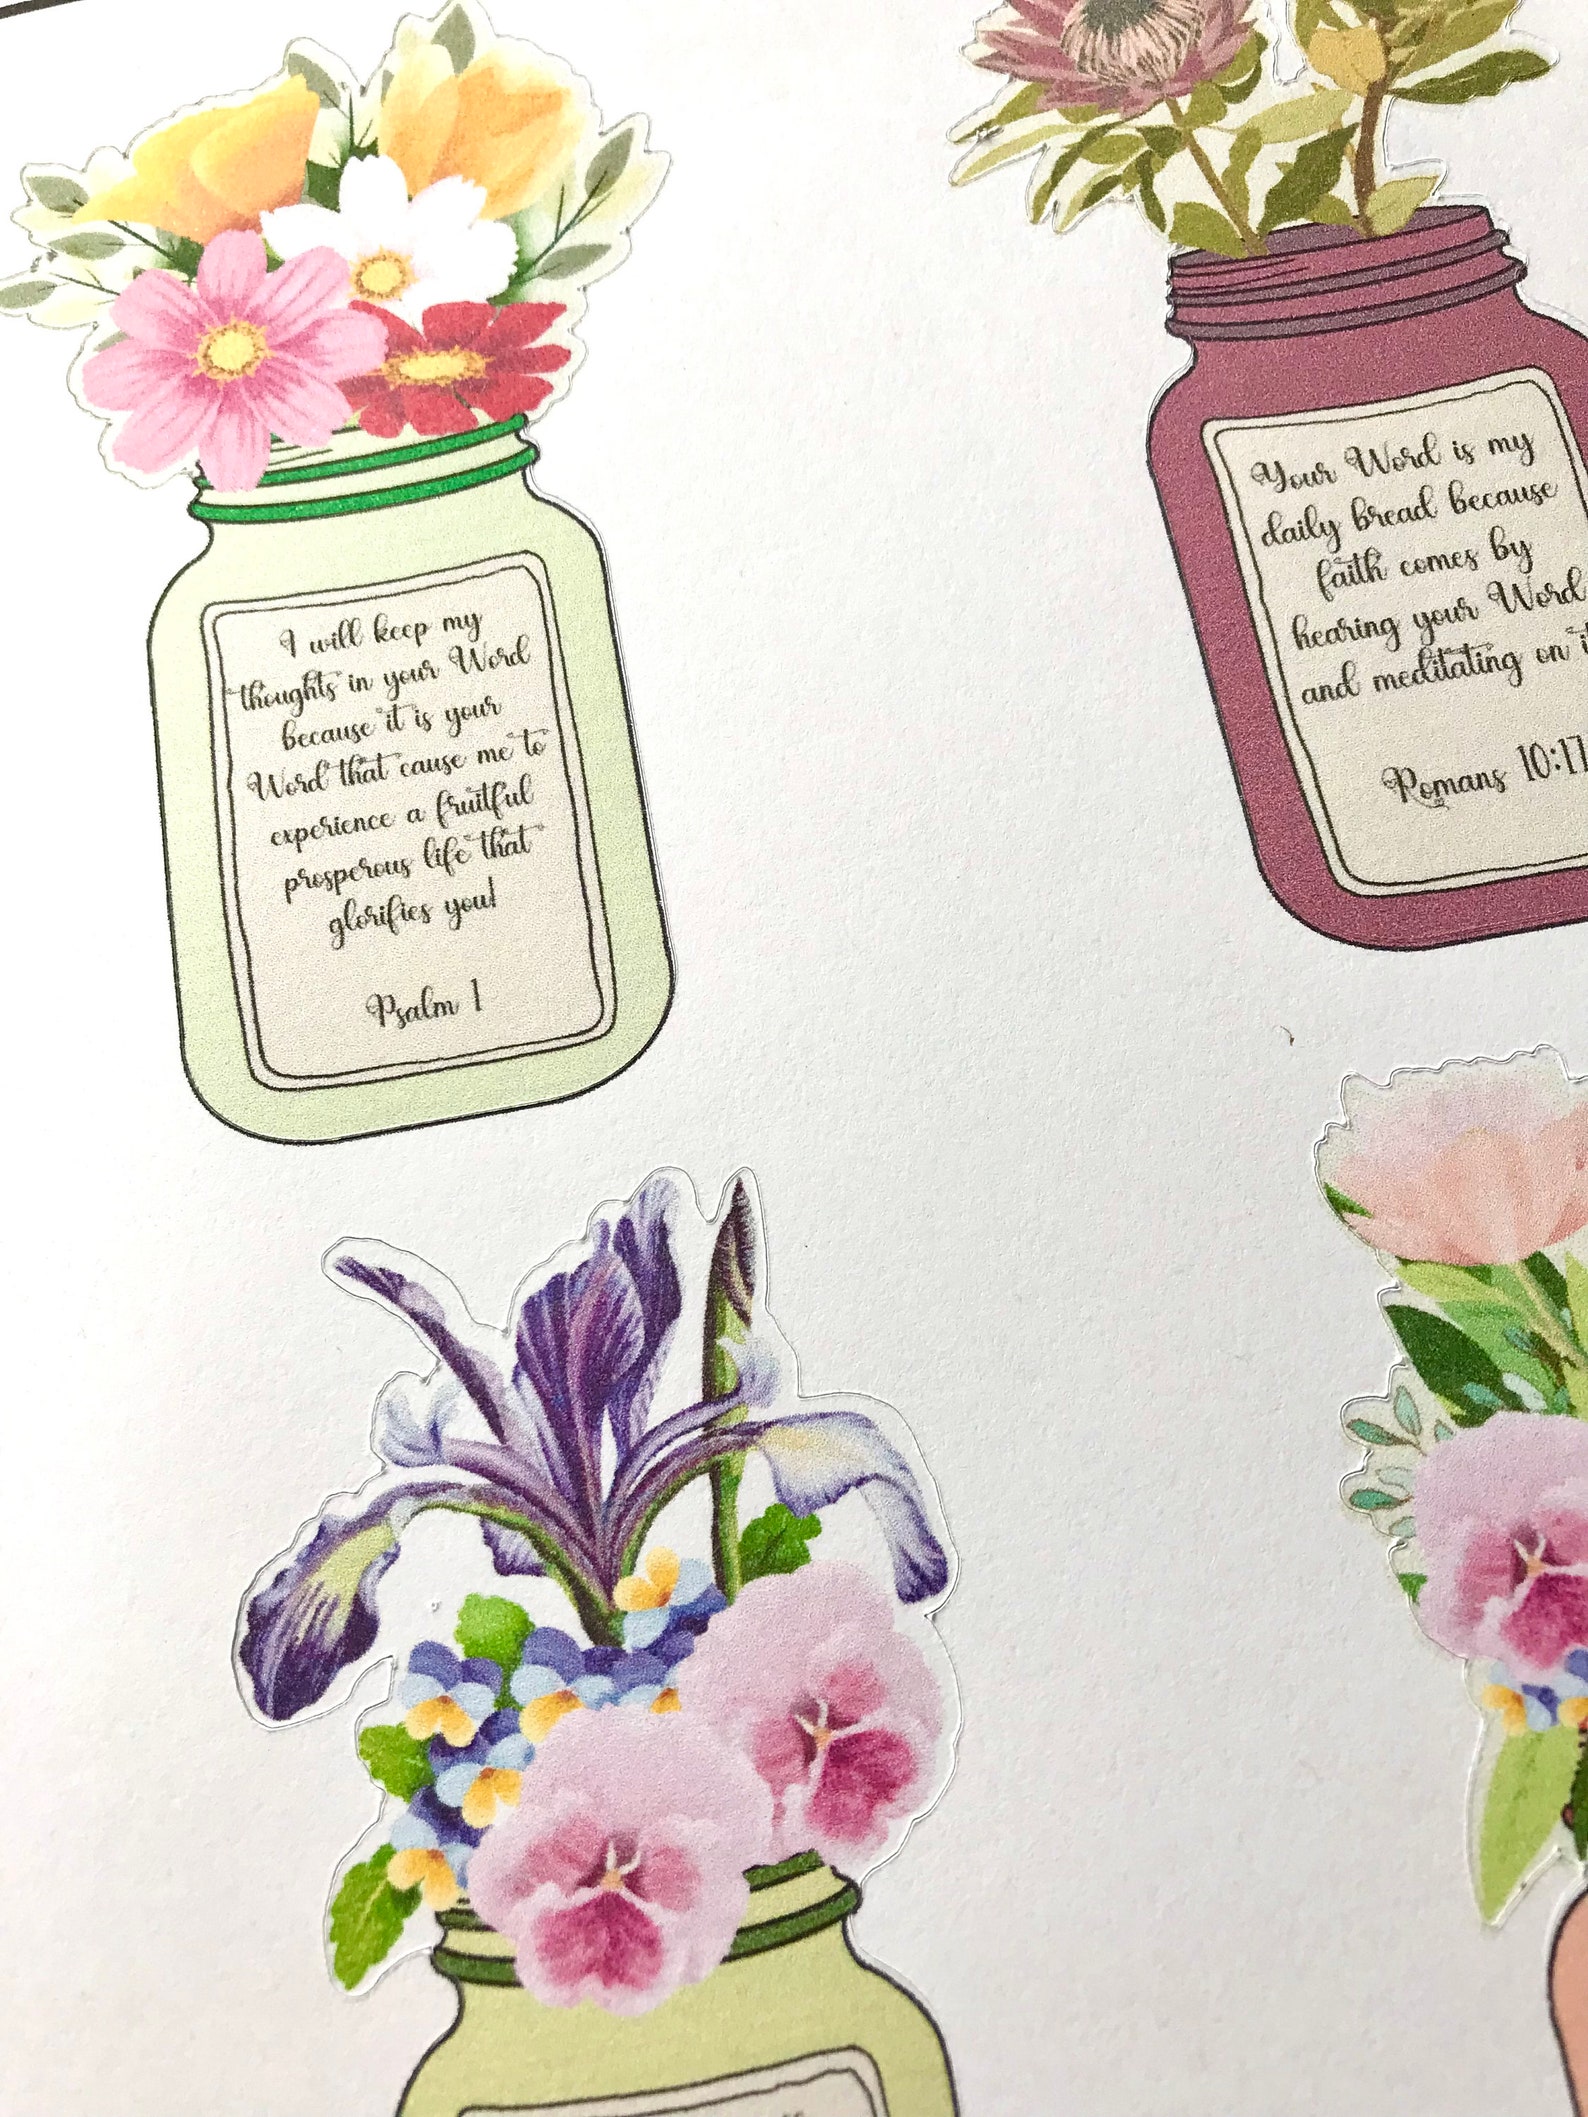 I will keep my
thoughts in your Word
because it is your
Word that cause me to
experience a fruitful
prosperous life that
glorifies you!
Psalm 1
Your Word is my
daily bread because
faith comes by
hearing your Word
and meditating on
Romans 10:17